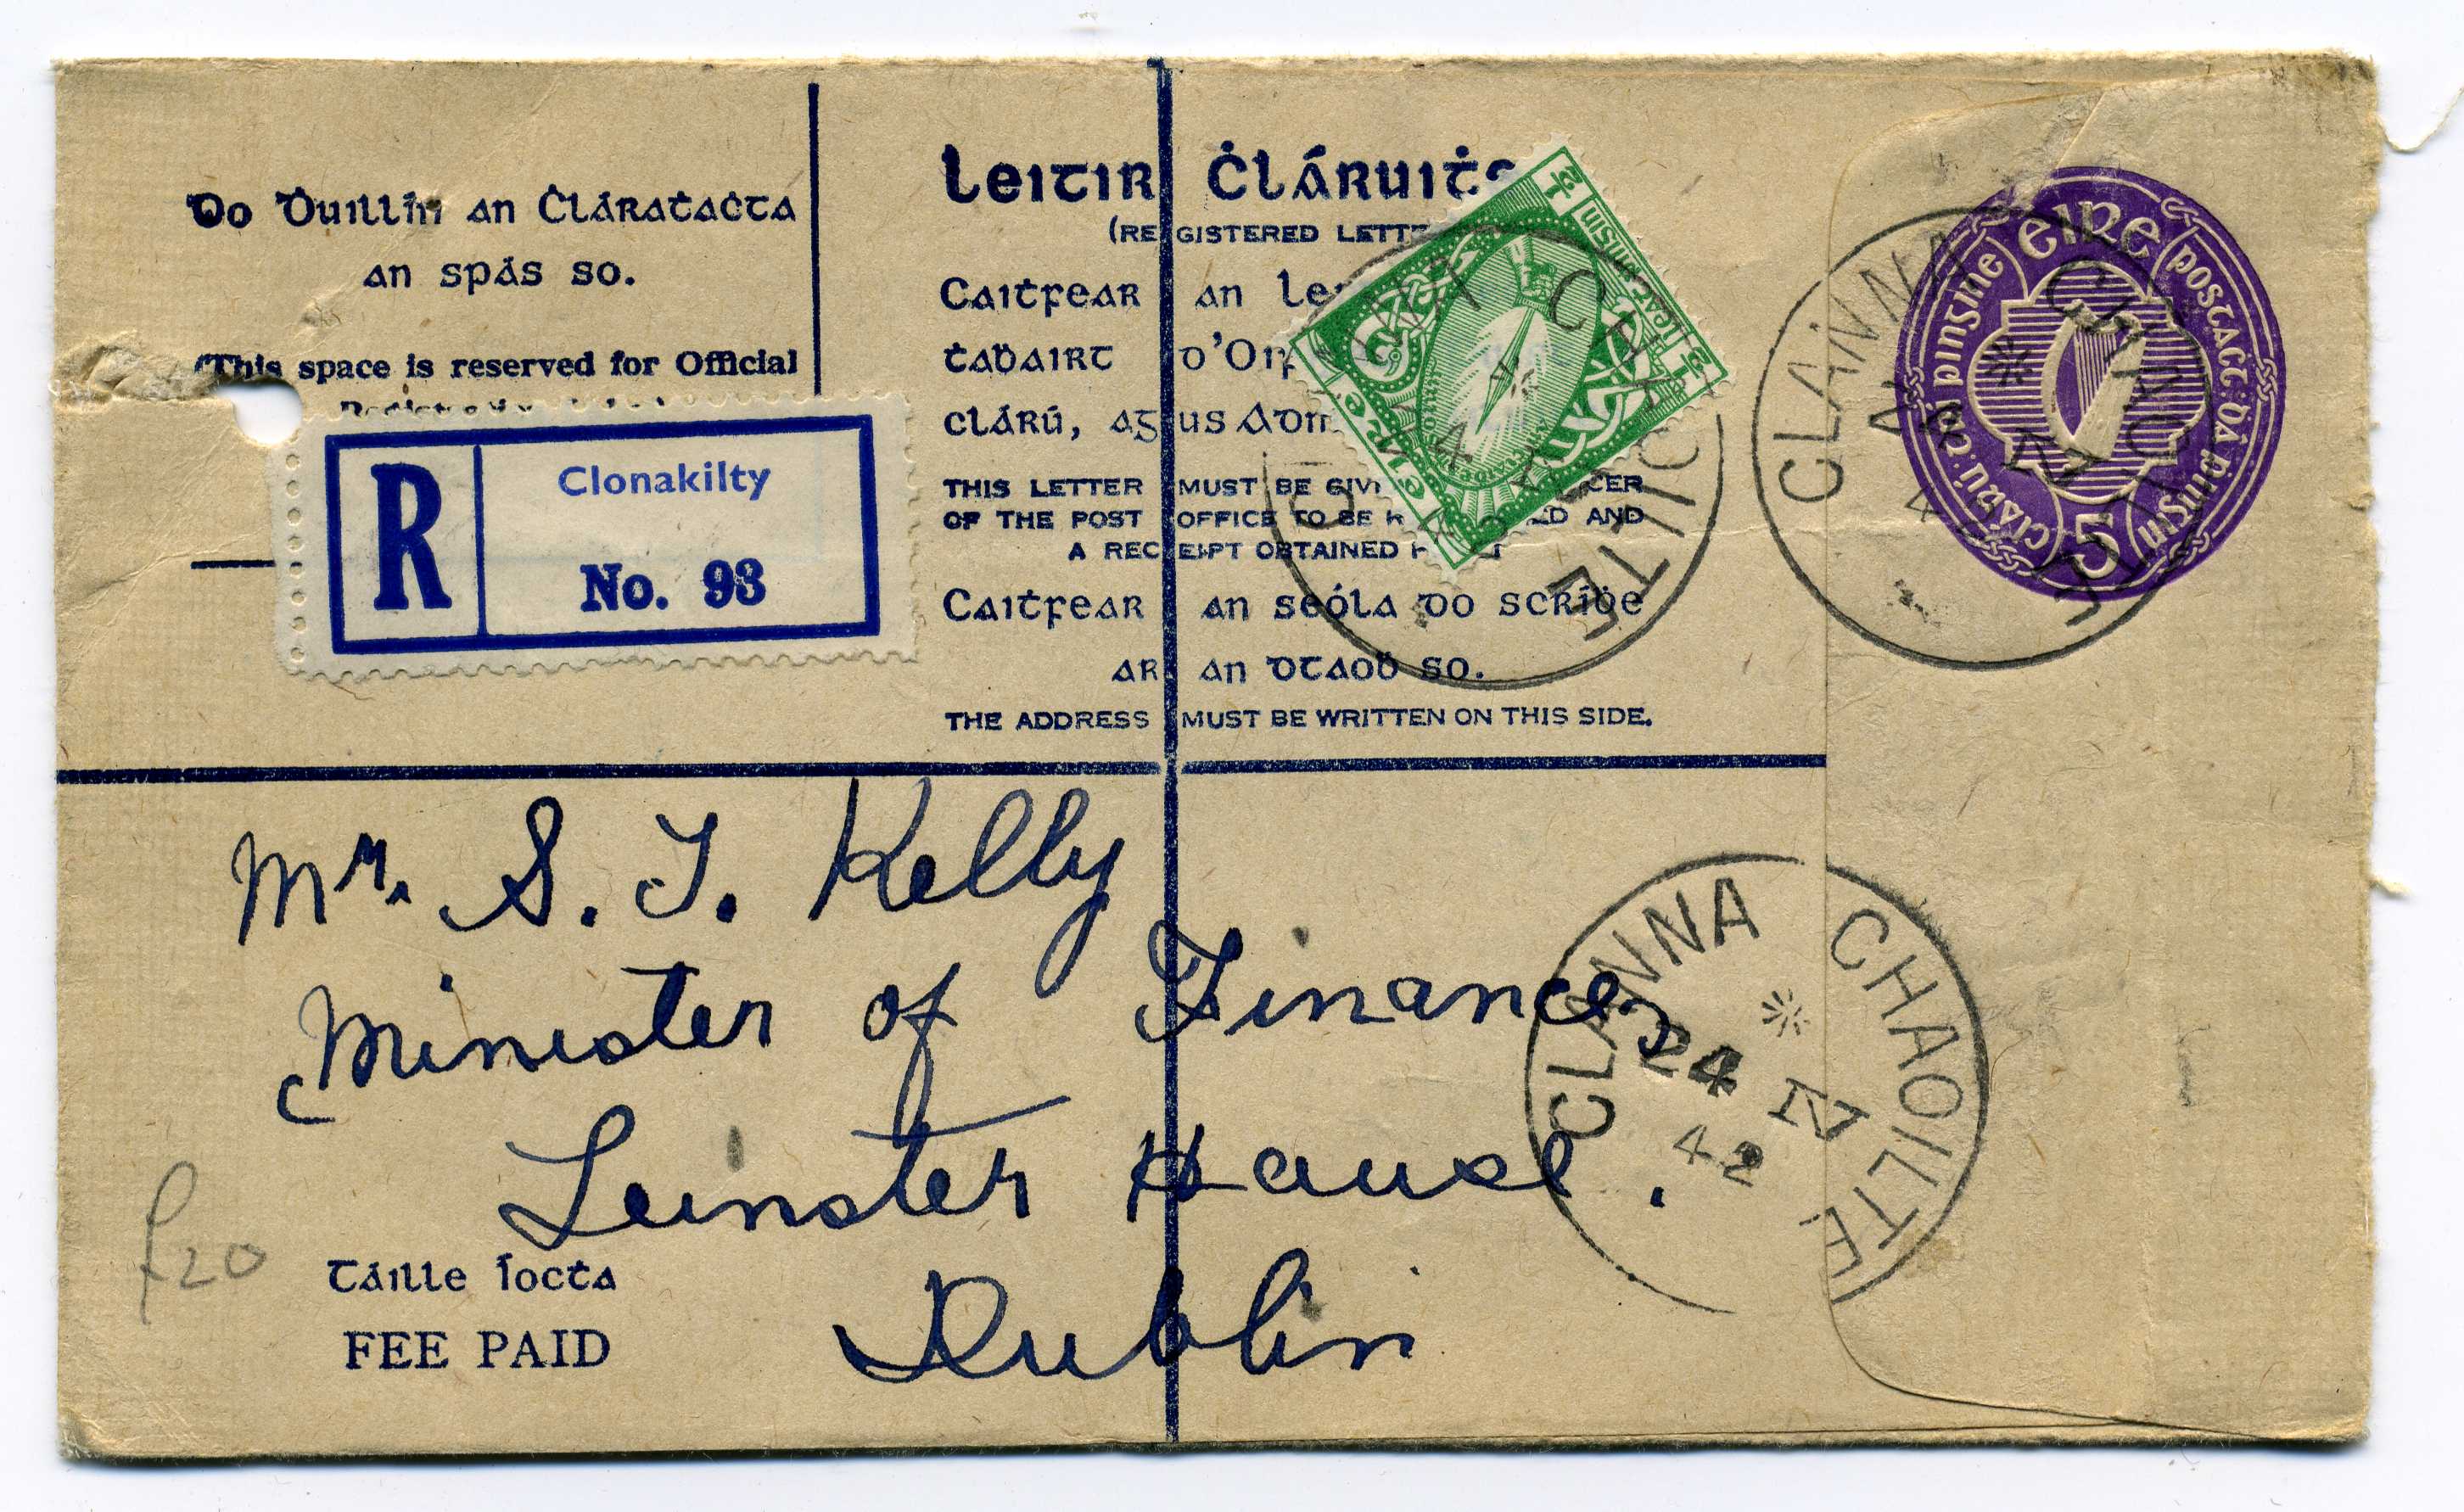 Do Ḋuillín an Ċláraṫaċta
an spás so.
(This space is reserved for Official
R
Clonakilty
No. 93
Leitir Ċláruiṫe
(REGISTERED LETTER
Caitfear an
ṫaḃairt d'Oif
clárú, agus Adm
THIS LETTER MUST BE GIV CER
OF THE POST OFFICE TO BE R ED AND
A RECEIPT OBTAINED
Caitfear an seóla do scríoḃe
ar an dtaoḃ so.
THE ADDRESS MUST BE WRITTEN ON THIS SIDE.
½ leat pingin ½
éire
éire
postas: dá pinsin
clárú: trí pinsine
5
CLANNA CHAOILTE
CLANNA CHAOILTE
Mr. S. T. Kelly
Minister of Finance
Leinster House.
Dublin
CLANNA CHAOILTE
24 IV
42
£20
Táille íocṫa
FEE PAID